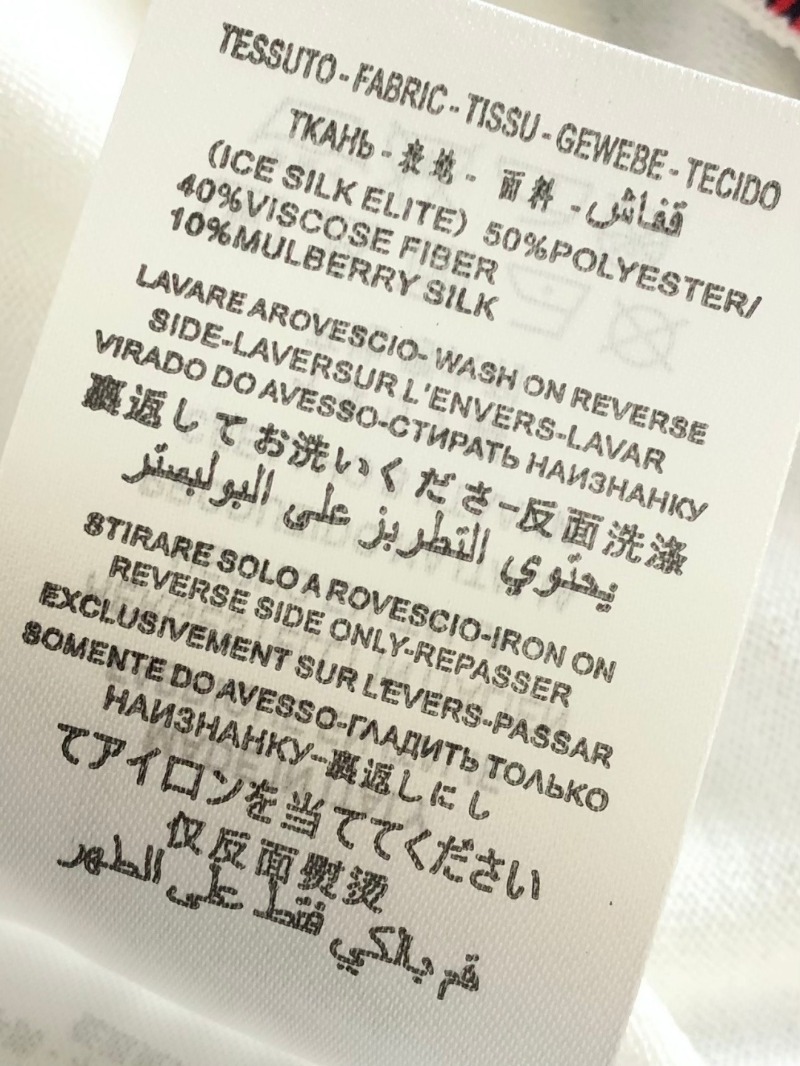 TESSUTO-FABRIC-TISSU-GEWEBE-TECIDO
ТКАНЬ-表地-面料-قفاش
(ICE SILK ELITE) 50%POLYESTER/
40%VISCOSE FIBER
10%MULBERRY SILK
LAVARE AROVESCIO- WASH ON REVERSE
SIDE-LAVERSUR L'ENVERS-LAVAR
VIRADO DO AVESSO-СТИРАТЬ НАИЗНАНКУ
裏返してお洗いくださ-反面洗涤
يحتوي التطريز على البوليستر
STIRARE SOLO A ROVESCIO-IRON ON
REVERSE SIDE ONLY-REPASSER
EXCLUSIVEMENT SUR L'EVERS-PASSAR
SOMENTE DO AVESSO-ГЛАДИТЬ ТОЛЬКО
НАИЗНАНКУ-裏返しにし
てアイロンを当ててください
仅反面熨烫
قم بالكي فقط على الظهر